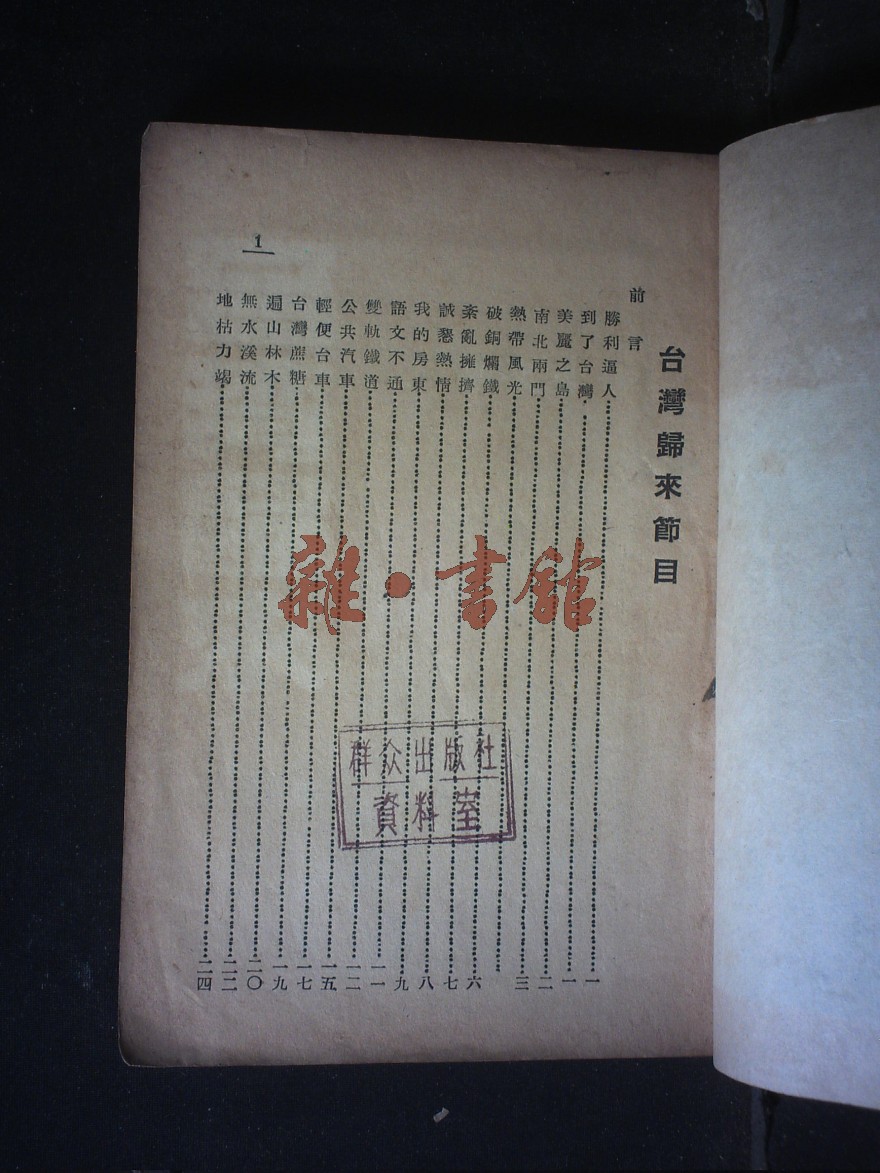 台灣歸來節目
前言
勝利逼人……一
到了台灣……一
美麗之島……二
南北兩門……三
熱帶風光……
破銅爛鐵……六
紊亂擁擠……七
誠懇熱情……八
我的房東……九
語文不通……一一
雙軌鐵道……一二
公共汽車……一五
輕便台車……一七
台灣蔗糖……一九
遍山林木……二〇
無水溪流……二二
地枯力竭……二四
1
雜·書館
群众出版社
資料室